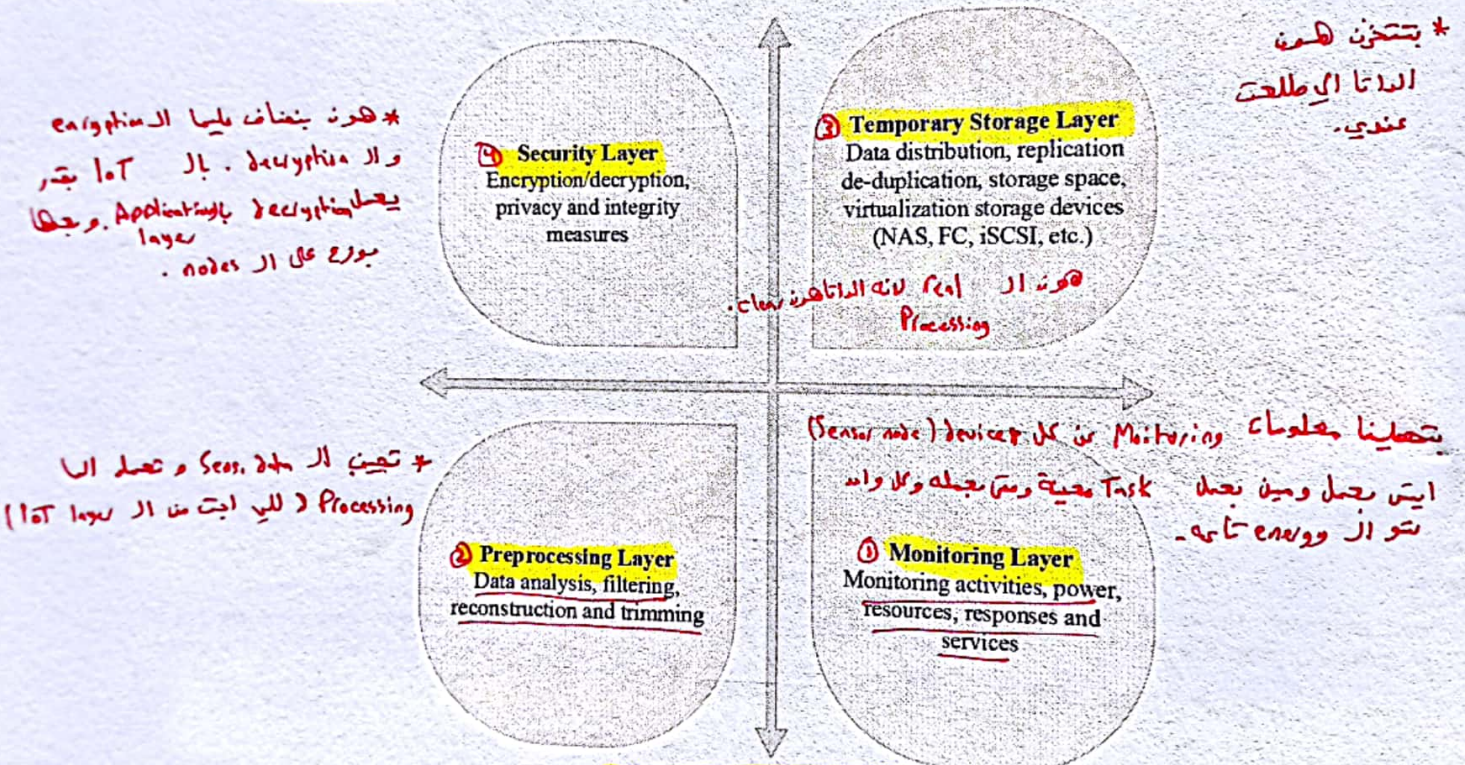 * بتتخزن هون
الداتا الي طلعت
عندي.
* هون بنضاف عليها ال encryption
و ال decryption . بال IoT بقدر
يعمل decryption بال Application layer
بوزع على ال nodes .
④ Security Layer
Encryption/decryption,
privacy and integrity
measures
③ Temporary Storage Layer
Data distribution, replication
de-duplication, storage space,
virtualization storage devices
(NAS, FC, iSCSI, etc.)
هون ال real Processing لانه الداتا هون clear.
بتعطينا معلومات Monitoring عن كل device (Sensor node)
ايش بعمل ومين بعمل Task معينة ومتى بعمله وكل واحد
شو ال energy تاعه.
* تجيب ال Sens. data و تعمل الها
Processing ( للي اجت من ال IoT layer)
② Preprocessing Layer
Data analysis, filtering,
reconstruction and trimming
① Monitoring Layer
Monitoring activities, power,
resources, responses and
services